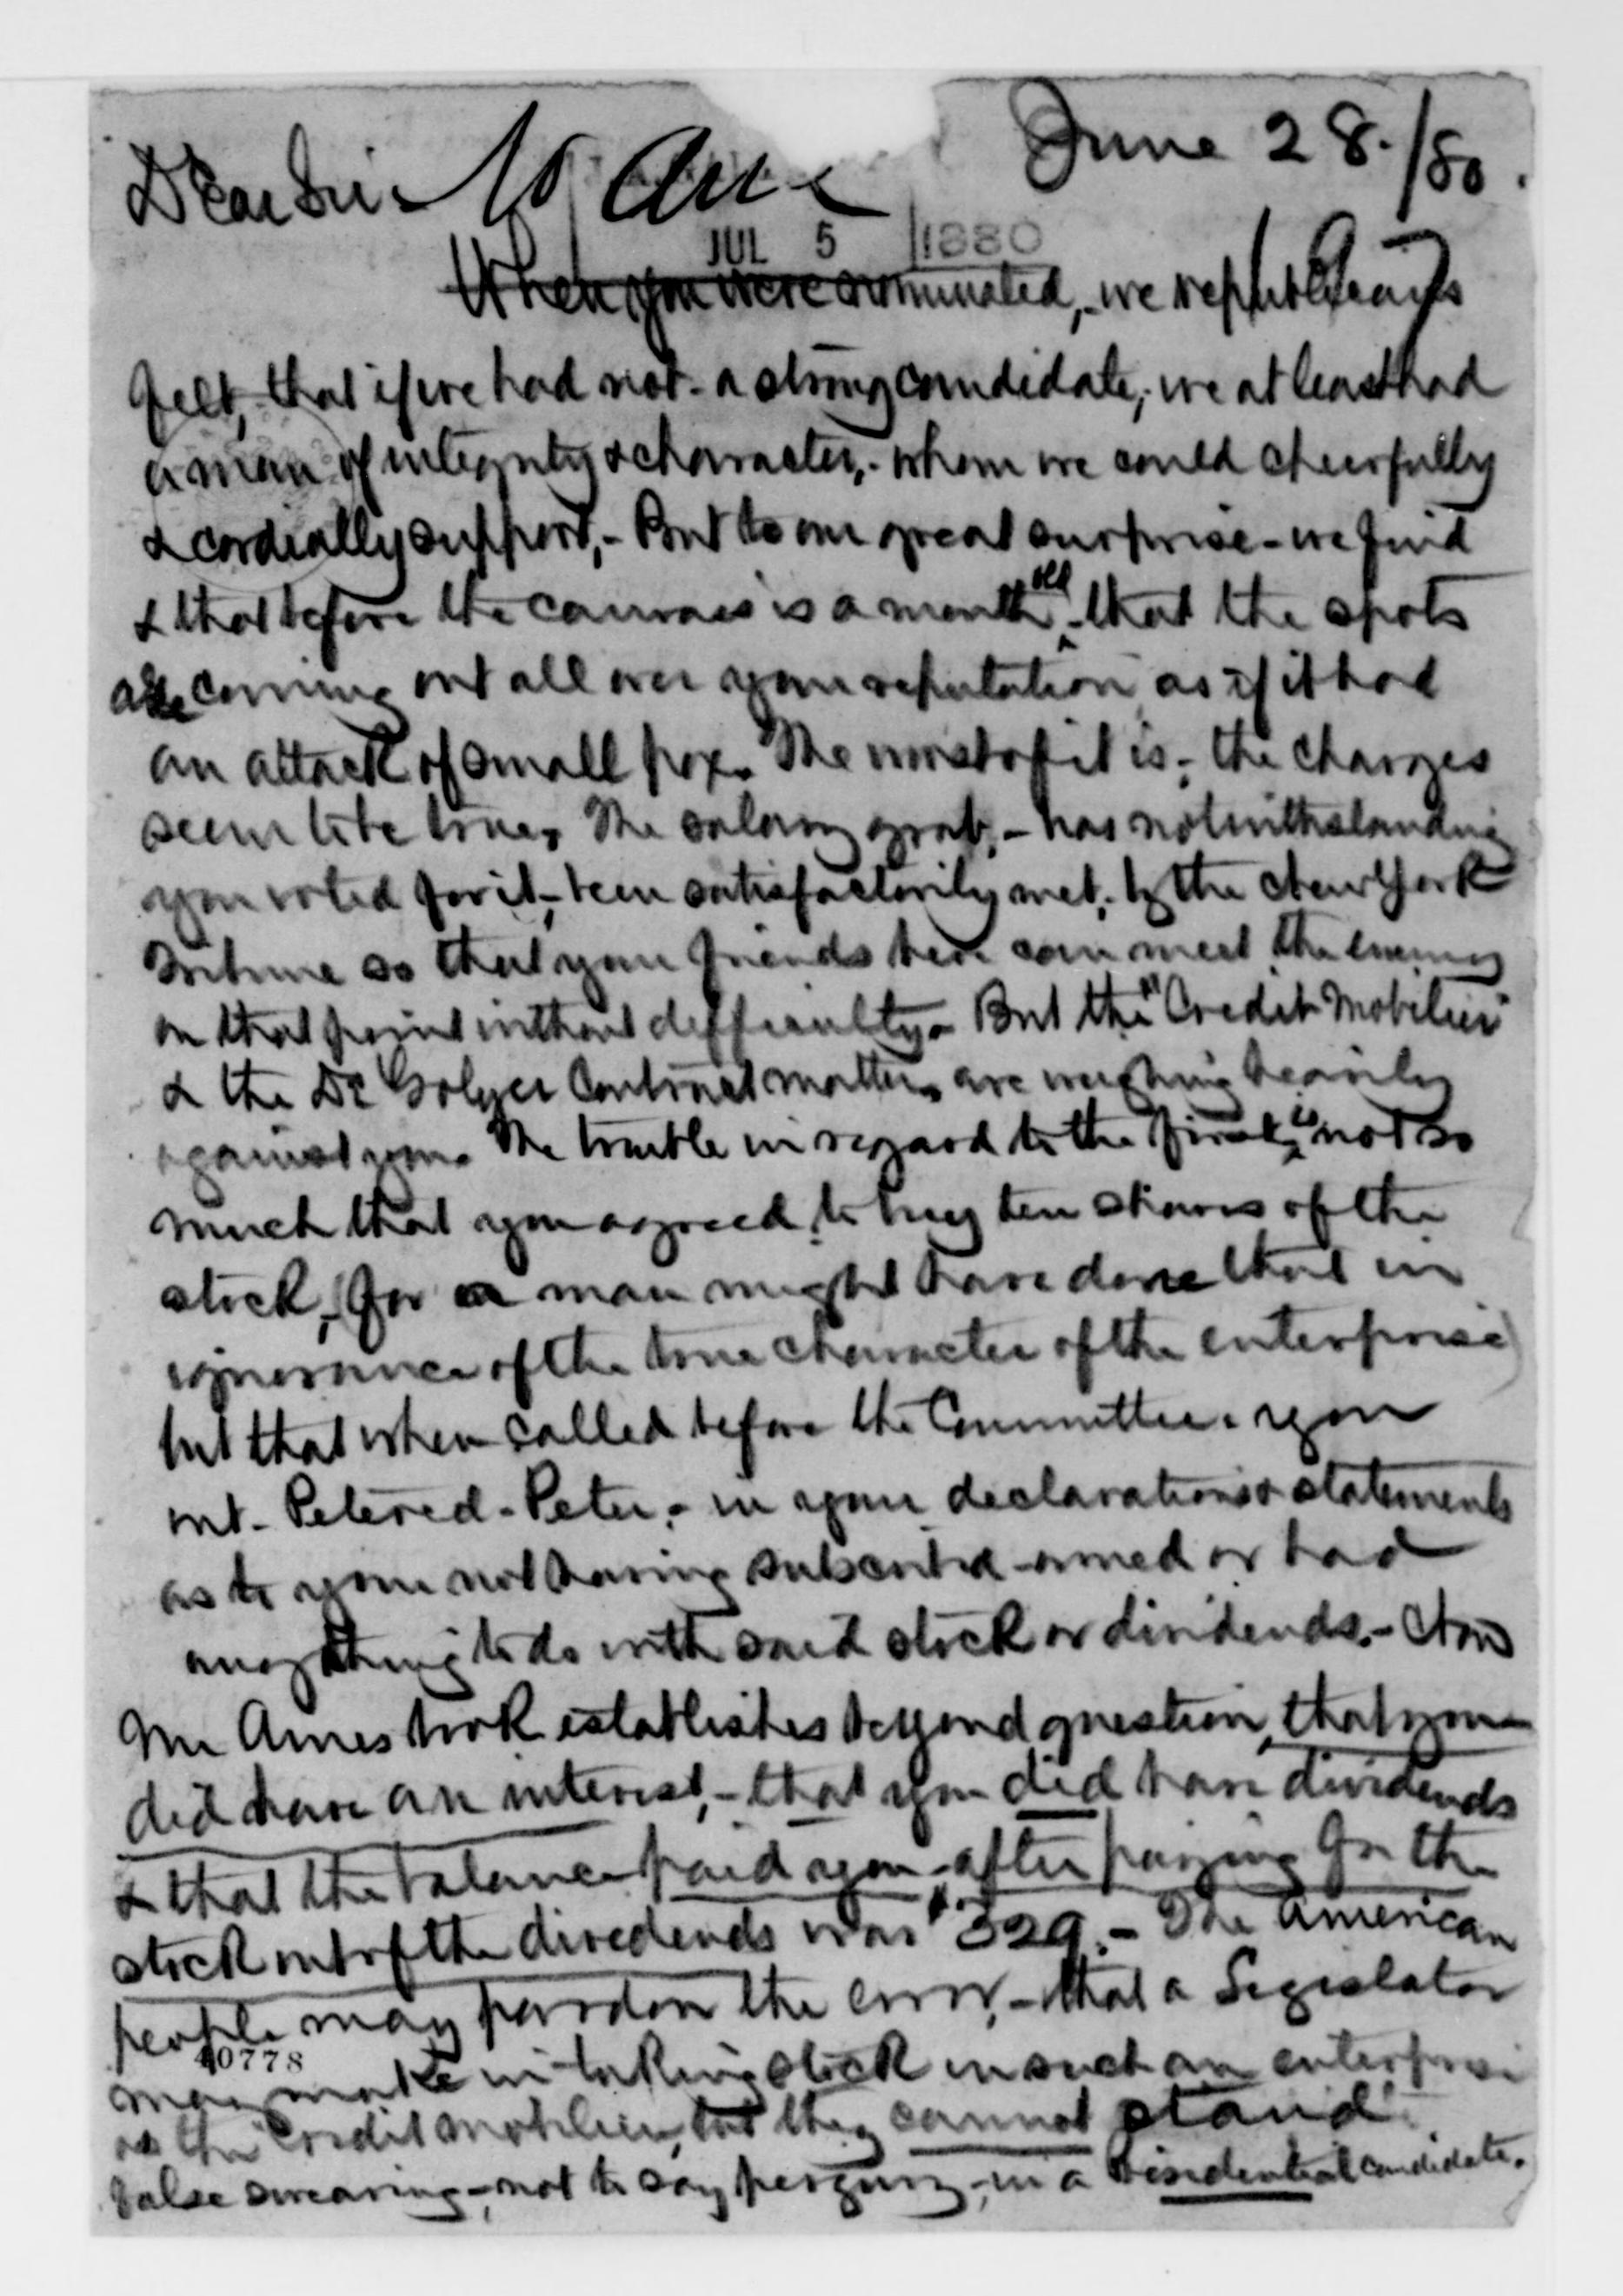 June 28./80.
Dear Sir - No Ans
JUL 5 1880
When you were nominated, - we republicans
felt, that if we had not - a strong candidate, we at least had
a man of integrity & character, - whom we could cheerfully
& cordially support, - But to our great surprise - we find
& that before the canvass is a month old, that the spots
are coming out all over your reputation as if it had
an attack of small pox. The worst of it is, the charges
seem to be true, The salary grab, - has notwithstanding
you voted for it, been satisfactorily met, by the New York
Tribune so that your friends here can meet the enemy
on that point without difficulty. But the "Credit Mobilier"
& the De Golyer Contract matters are weighing heavily
against you. The trouble in regard to the first, is not so
much that you agreed to buy ten shares of the
stock, (for a man might have done that in
ignorance of the true character of the enterprise)
but that when called before the Committee. you
out - Petered - Peter, - in your declarations & statements
as to your not having subscribed - owned or had
anything to do with said stock or dividends. - Now
Mr Ames book establishes beyond question, that you
did have an interest, - that you did have dividends
& that the balance paid you - after paying for the
stock out of the dividends was $329. - The American
people may pardon the error, - that a Legislator
40778
may make in taking stock in such an enterprise
as the Credit Mobilier, but they cannot stand
false swearing -, not to say perjury -, in a Presidential candidate.